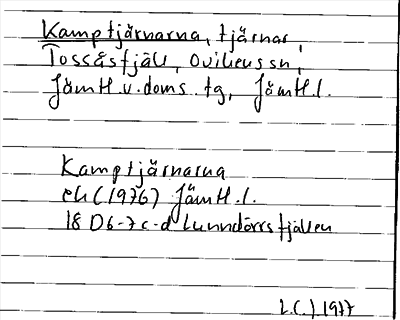 Kamptjärnarna, tjärnar,
Tossåsfjäll, Ovikens sn,
Jämtl. v. doms. tg, Jämtl. l.
Kamptjärnarna
ek (1976) Jämtl. l.
18 D6-7c-d Lunndörrsfjällen
1977